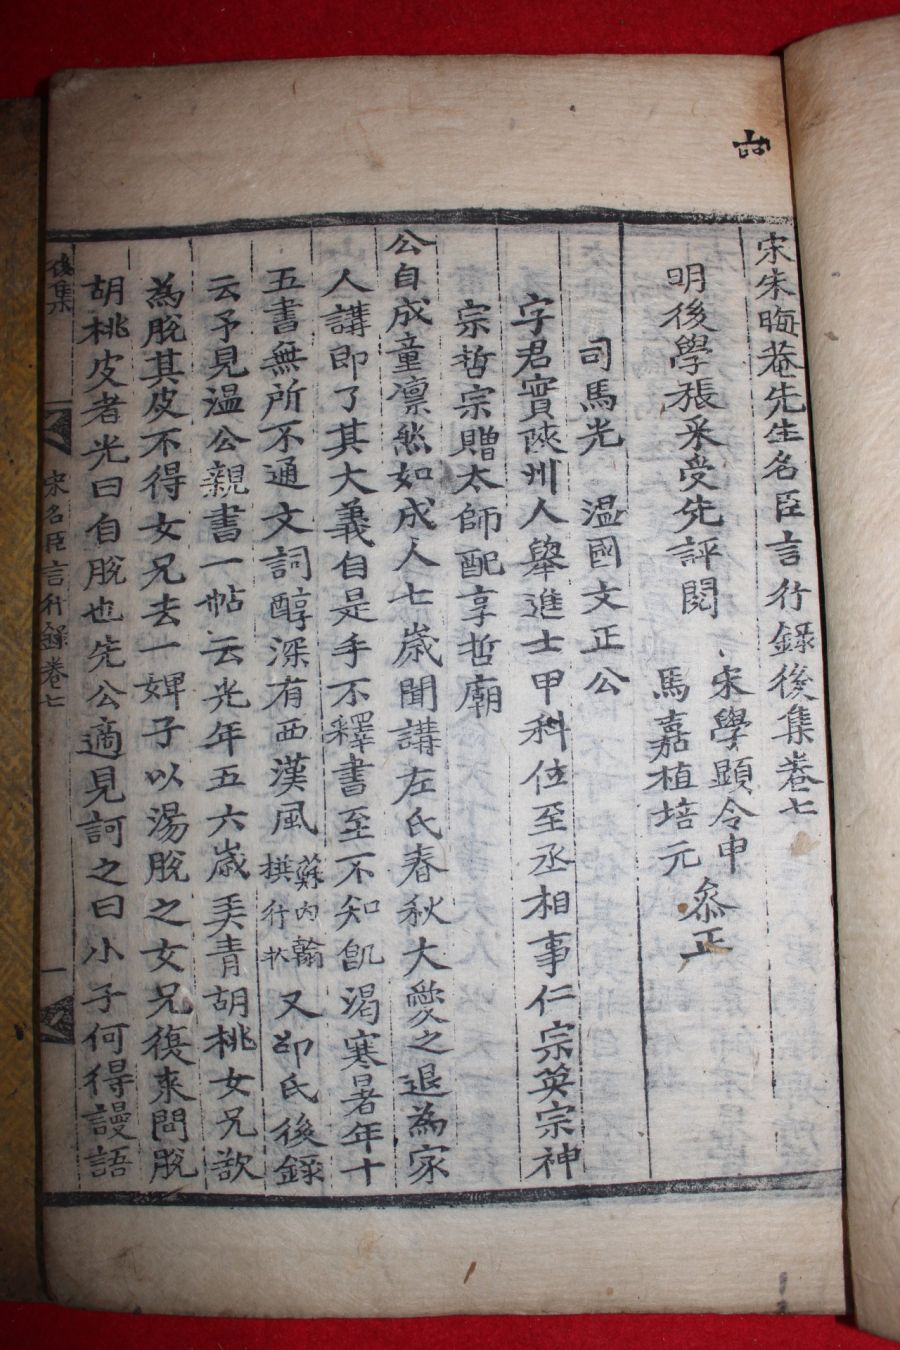 宋朱晦菴先生名臣言行錄後集卷七
明後學張采受先評閱
宋學顯令申
馬嘉植培元
叅正
司馬光　溫國文正公
字君實陝州人舉進士甲科位至丞相事仁宗英宗神
宗哲宗贈太師配享哲廟
公自成童凛然如成人七歲聞講左氏春秋大愛之退為家
人講即了其大義自是手不釋書至不知飢渴寒暑年十
五書無所不通文詞醇深有西漢風蘇內翰撰行狀又邵氏後錄
云予見溫公親書一帖云光年五六歲弄青胡桃女兄欲
為脫其皮不得女兄去一婢子以湯脫之女兄復來問脫
胡桃皮者光曰自脫也先公適見訶之曰小子何得謾語
後集
宋名臣言行錄卷七
一